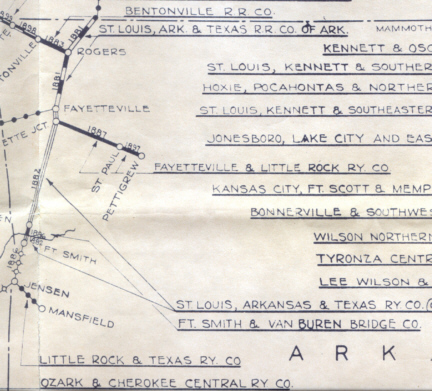 BENTONVILLE R.R. CO.
ST. LOUIS, ARK & TEXAS RR. CO. OF ARK.
MAMMOTH
KENNETT & OSC
ROGERS
ST. LOUIS, KENNETT & SOUTHER
HOXIE, POCAHONTAS & NORTHER
FAYETTEVILLE
ST. LOUIS, KENNETT & SOUTHEASTER
ETTE JCT
1887
1897
JONESBORO, LAKE CITY AND EAS
ST PAUL
PETTIGREW
FAYETTEVILLE & LITTLE ROCK RY. CO
KANSAS CITY, FT. SCOTT & MEMP
1882
BONNERVILLE & SOUTHWES
WILSON NORTHERN
FT. SMITH
TYRONZA CENTR
LEE WILSON &
JENSEN
ST LOUIS, ARKANSAS & TEXAS RY. CO. (
MANSFIELD
FT. SMITH & VAN BUREN BRIDGE CO.
A R K
LITTLE ROCK & TEXAS RY. CO
OZARK & CHEROKEE CENTRAL RY CO.